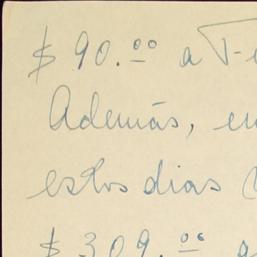 $ 90.00 a
Además, en
estos dias
$ 309.06